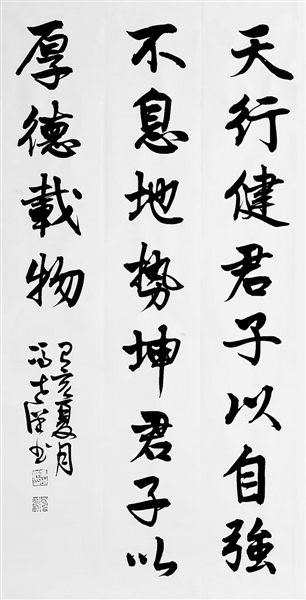 天行健君子以自強
不息地势坤君子以
厚德載物
己亥夏月